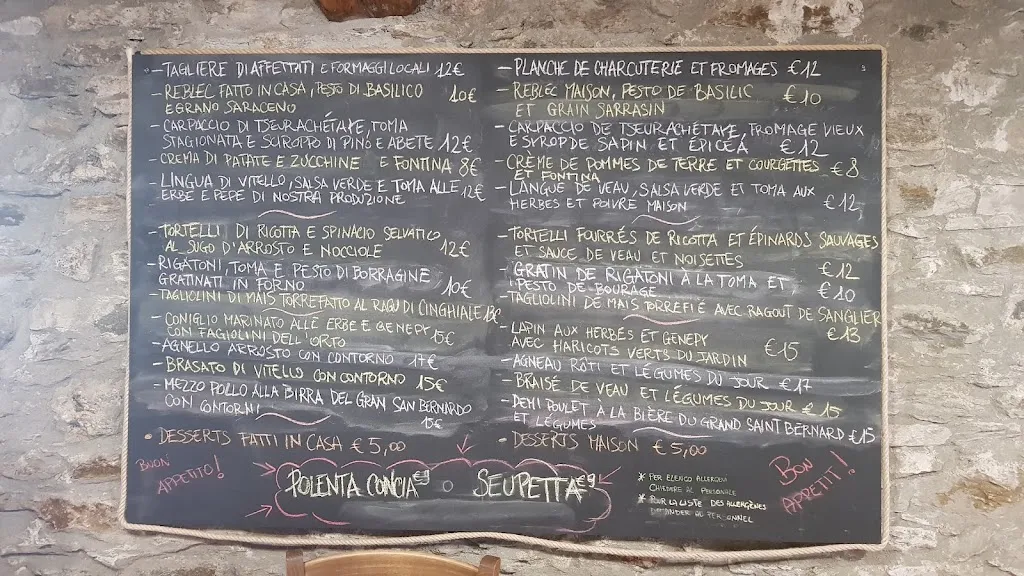 - TAGLIERE DI AFFETTATI E FORMAGGI LOCALI 12€
- REBLEC FATTO IN CASA, PESTO DI BASILICO
E GRANO SARACENO 10€
- CARPACCIO DI TSEURACHÉTAXE, TOMA
STAGIONATA E SCIROPPO DI PINO E ABETE 12€
- CREMA DI PATATE E ZUCCHINE E FONTINA 8€
- LINGUA DI VITELLO, SALSA VERDE E TOMA ALLE
ERBE E PEPE DI NOSTRA PRODUZIONE 12€
- TORTELLI DI RICOTTA E SPINACIO SELVATICO
AL SUGO D'ARROSTO E NOCCIOLE 12€
- RIGATONI, TOMA E PESTO DI BORRAGINE
GRATINATI IN FORNO 10€
- TAGLIOLINI DI MAIS TORREFATTO AL RAGÙ DI CINGHIALE 13€
- CONIGLIO MARINATO ALLE ERBE E GENEPY
CON FAGIOLINI DELL'ORTO 15€
- AGNELLO ARROSTO CON CONTORNO 17€
- BRASATO DI VITELLO CON CONTORNO 15€
- MEZZO POLLO ALLA BIRRA DEL GRAN SAN BERNARDO
CON CONTORNI 15€
• DESSERTS FATTI IN CASA € 5,00
BUON
APPETITO!
- PLANCHE DE CHARCUTERIE ET FROMAGES €12
- REBLEC MAISON, PESTO DE BASILIC
ET GRAIN SARRASIN €10
- CARPACCIO DE TSEURACHÉTAXE, FROMAGE VIEUX
E SYROP DE SAPIN ET ÉPICÉA €12
- CRÈME DE POMMES DE TERRE ET COURGETTES
ET FONTINA €8
- LANGUE DE VEAU, SALSA VERDE ET TOMA AUX
HERBES ET POIVRE MAISON €12
- TORTELLI FOURRÉS DE RICOTTA ET ÉPINARDS SAUVAGES
ET SAUCE DE VEAU ET NOISETTES €12
- GRATIN DE RIGATONI À LA TOMA ET
PESTO DE BOURAGE €10
- TAGLIOLINI DE MAIS TORREFIÉ AVEC RAGOUT DE SANGLIER
€13
- LAPIN AUX HERBES ET GENEPY
AVEC HARICOTS VERTS DU JARDIN €15
- AGNEAU RÔTI ET LÉGUMES DU JOUR €17
- BRAISÉ DE VEAU ET LÉGUMES DU JOUR €15
- DEMI POULET À LA BIÈRE DU GRAND SAINT BERNARD €15
ET LÉGUMES
• DESSERTS MAISON € 5,00
POLENTA CONCIA • SEUPETTA €9
* PER ELENCO ALLERGENI
CHIEDERE AL PERSONALE
* POUR LA LISTE DES ALLERGÈNES
DEMANDER AU PERSONNEL
BON
APPETIT!